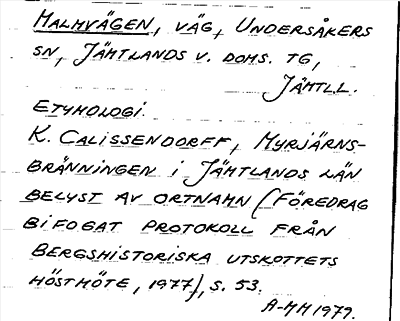 MALMVÄGEN, VÄG, UNDERSÅKERS
SN, JÄMTLANDS V. DOMS. TG,
JÄMTLL.
ETYMOLOGI.
K. CALISSENDORFF, MYRJÄRNS-
BRÄNNINGEN I JÄMTLANDS LÄN
BELYST AV ORTNAMN (FÖREDRAG
BIFOGAT PROTOKOLL FRÅN
BERGSHISTORISKA UTSKOTTETS
HÖSTMÖTE, 1977), S. 53.
A-MH 1979.